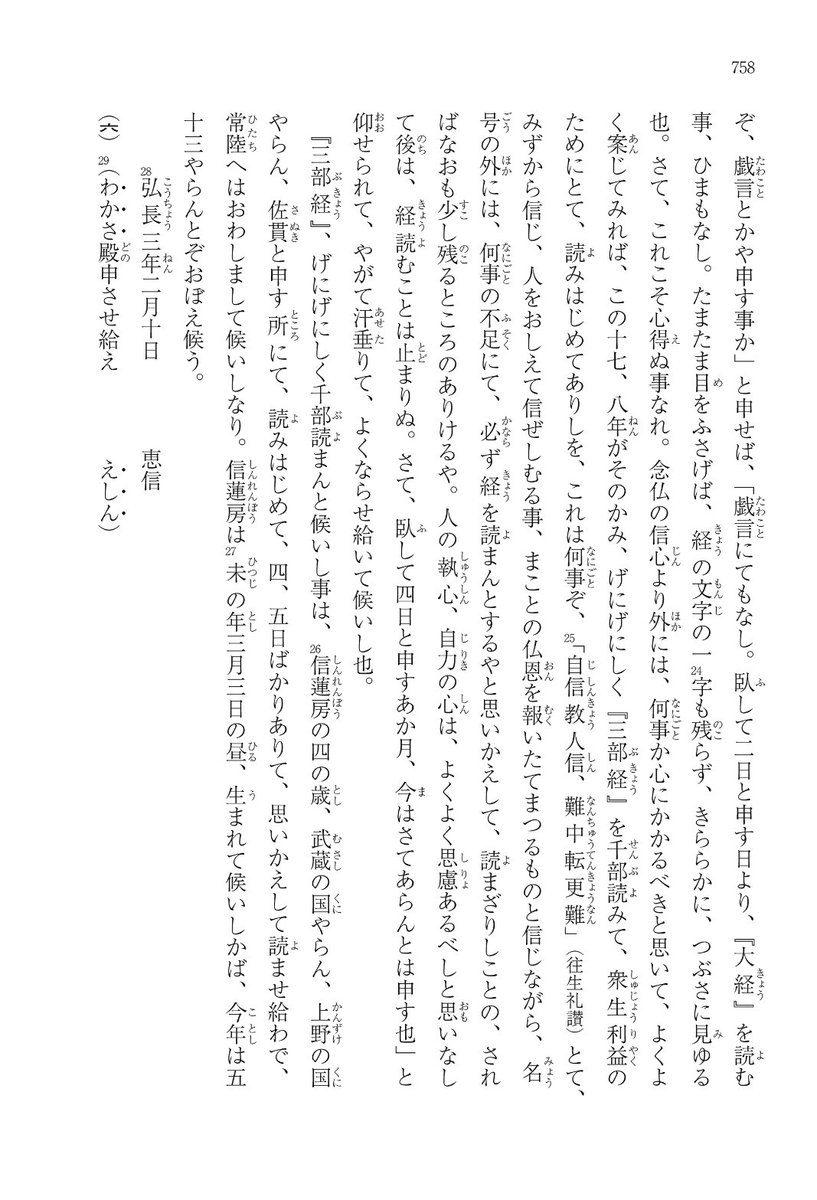 758
ぞ、戯言とかや申す事か」と申せば、「戯言にてもなし。臥して二日と申す日より、『大経』を読む
事、ひまもなし。たまたま目をふさげば、経の文字の一24字も残らず、きららかに、つぶさに見ゆる
也。さて、これこそ心得ぬ事なれ。念仏の信心より外には、何事か心にかかるべきと思いて、よくよ
く案じてみれば、この十七、八年がそのかみ、げにげにしく『三部経』を千部読みて、衆生利益の
ためにとて、読みはじめてありしを、これは何事ぞ、25「自信教人信、難中転更難」(往生礼讃)とて、
みずから信じ、人をおしえて信ぜしむる事、まことの仏恩を報いたてまつるものと信じながら、名
号の外には、何事の不足にて、必ず経を読まんとするやと思いかえして、読まざりしことの、され
ばなおも少し残るところのありけるや。人の執心、自力の心は、よくよく思慮あるべしと思いなし
て後は、経読むことは止まりぬ。さて、臥して四日と申すあか月、今はさてあらんとは申す也」と
仰せられて、やがて汗垂りて、よくならせ給いて候いし也。
『三部経』、げにげにしく千部読まんと候いし事は、26信蓮房の四の歳、武蔵の国やらん、上野の国
やらん、佐貫と申す所にて、読みはじめて、四、五日ばかりありて、思いかえして読ませ給わで、
常陸へはおわしまして候いしなり。信蓮房は27未の年三月三日の昼、生まれて候いしかば、今年は五
十三やらんとぞおぼえ候う。
28弘長三年二月十日　恵信
(六)　29(わかさ殿申させ給え　えしん)